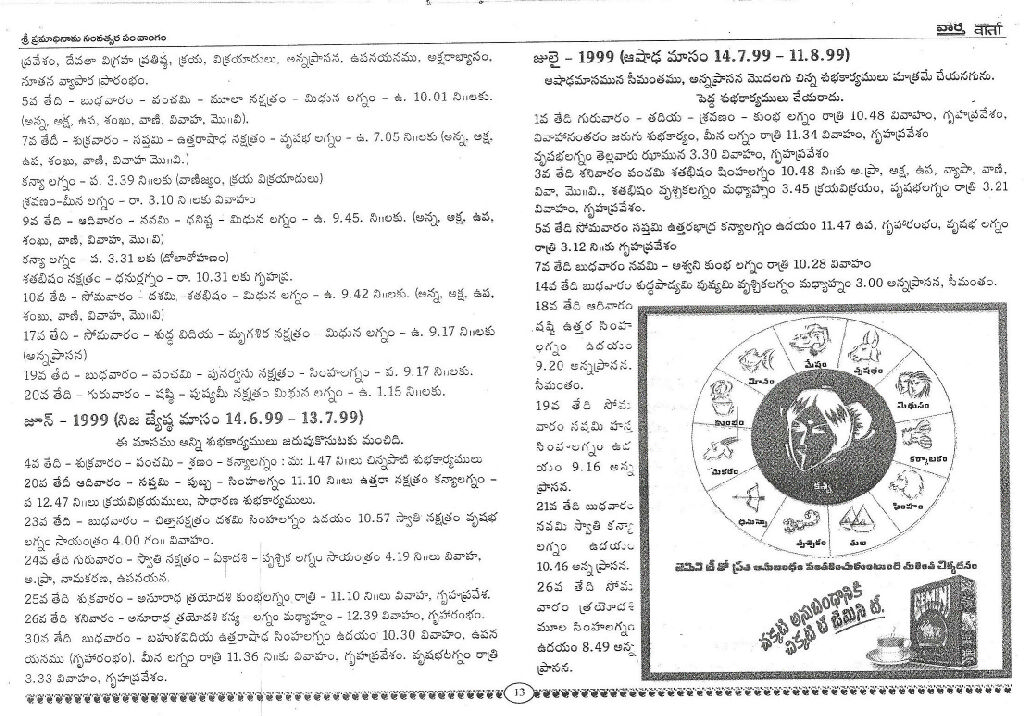 శ్రీ ప్రమాథినామ సంవత్సర పంచాంగం
వార్త वार्ता
ప్రవేశం, దేవతా విగ్రహ ప్రతిష్ఠ, క్రయ, విక్రయాదులు, అన్నప్రాసన, ఉపనయనము, అక్షరాభ్యాసం,
నూతన వ్యాపార ప్రారంభం.
5వ తేది - బుధవారం - పంచమి - మూలా నక్షత్రం - మిధున లగ్నం - ఉ. 10.01 ని॥లకు.
(అన్న, అక్ష, ఉప, శంఖు, వాణి, వివాహ, మొ॥వి).
7వ తేది - శుక్రవారం - సప్తమి - ఉత్తరాషాఢ నక్షత్రం - వృషభ లగ్నం - ఉ. 7.05 ని॥లకు (అన్న, అక్ష,
ఉప, శంఖు, వాణి, వివాహ మొ॥వి.)
కన్యా లగ్నం - ప. 3.39 ని॥లకు (వాణిజ్యం, క్రయ విక్రయాదులు)
శ్రవణం-మీన లగ్నం - రా. 3.10 ని॥లకు వివాహం
9వ తేది - ఆదివారం - నవమి - ధనిష్ట - మిధున లగ్నం - ఉ. 9.45. ని॥లకు. (అన్న, అక్ష, ఉప,
శంఖు, వాణి, వివాహ, మొ॥వి)
కన్యా లగ్నం - ప. 3.31 లకు (డోలారోహణం)
శతభిషం నక్షత్రం - ధనుర్లగ్నం - రా. 10.31 లకు గృహప్ర.
10వ తేది - సోమవారం - దశమి, శతభిషం - మిధున లగ్నం - ఉ. 9.42 ని॥లకు. (అన్న, అక్ష, ఉప,
శంఖు, వాణి, వివాహ, మొ॥వి)
17వ తేది - సోమవారం - శుద్ధ విదియ - మృగశిర నక్షత్రం మిధున లగ్నం - ఉ. 9.17 ని॥లకు
(అన్నప్రాసన)
19వ తేది - బుధవారం - పంచమి - పునర్వసు నక్షత్రం - సింహలగ్నం - ప. 9.17 ని॥లకు.
20వ తేది - గురువారం - షష్ఠి - పుష్యమీ నక్షత్రం మిధున లగ్నం - ఉ. 1.15 ని॥లకు.
జూన్ - 1999 (నిజ జ్యేష్ఠ మాసం 14.6.99 - 13.7.99)
ఈ మాసము అన్ని శుభకార్యములు జరుపుకొనుటకు మంచిది.
4వ తేది - శుక్రవారం - పంచమి - శ్రణం - కన్యాలగ్నం : మ: 1.47 ని॥లు చిన్నపాటి శుభకార్యములు
20వ తేదీ ఆదివారం - సప్తమి - పుబ్బ - సింహలగ్నం 11.10 ని॥లు ఉత్తరా నక్షత్రం కన్యాలగ్నం -
ప 12.47 ని॥లు క్రయవిక్రయములు, సాధారణ శుభకార్యములు.
23వ తేది - బుధవారం - చిత్తానక్షత్రం దశమి సింహలగ్నం ఉదయం 10.57 స్వాతి నక్షత్రం వృషభ
లగ్నం సాయంత్రం 4.00 గం॥ వివాహం.
24వ తేది గురువారం - స్వాతి నక్షత్రం - ఏకాదశి - వృశ్చిక లగ్నం సాయంత్రం 4.19 ని॥లు వివాహ,
అ.ప్రా, నామకరణ, ఉపనయన.
25వ తేది శుక్రవారం - అనూరాధ త్రయోదశి కుంభలగ్నం రాత్రి - 11.10 ని॥లు వివాహ, గృహప్రవేశ.
26వ తేది శనివారం - అనూరాధ త్రయోదశి కన్య లగ్నం మధ్యాహ్నం - 12.39 వివాహం, గృహారంభం.
30వ తేది బుధవారం - బహుళవిదియ ఉత్తరాషాఢ సింహలగ్నం ఉదయం 10.30 వివాహం, ఉపన
యనము (గృహారంభం). మీన లగ్నం రాత్రి 11.36 ని॥కు వివాహం, గృహప్రవేశం. వృషభలగ్నం రాత్రి
3.33 వివాహం, గృహప్రవేశం.
జులై - 1999 (ఆషాఢ మాసం 14.7.99 - 11.8.99)
ఆషాఢమాసమున సీమంతము, అన్నప్రాసన మొదలగు చిన్న శుభకార్యములు మాత్రమే చేయనగును.
పెద్ద శుభకార్యములు చేయరాదు.
1వ తేది గురువారం - తదియ - శ్రవణం - కుంభ లగ్నం రాత్రి 10.48 వివాహం, గృహప్రవేశం,
వివాహానంతరం జరుగు శుభకార్యం, మీన లగ్నం రాత్రి 11.34 వివాహం, గృహప్రవేశం
వృషభలగ్నం తెల్లవారు ఝామున 3.30 వివాహం, గృహప్రవేశం
3వ తేది శనివారం పంచమి శతభిషం సింహలగ్నం 10.48 ని॥కు అ.ప్రా, అక్ష, ఉప, వ్యాపా, వాణి,
వివా, మొ॥వి., శతభిషం వృశ్చికలగ్నం మధ్యాహ్నం 3.45 క్రయవిక్రయం, వృషభలగ్నం రాత్రి 3.21
వివాహం, గృహప్రవేశం.
5వ తేది సోమవారం సప్తమి ఉత్తరభాద్ర కన్యాలగ్నం ఉదయం 11.47 ఉప. గృహారంభం, వృషభ లగ్నం
రాత్రి 3.12 ని॥కు గృహప్రవేశం
7వ తేది బుధవారం నవమి - అశ్వని కుంభ లగ్నం రాత్రి 10.28 వివాహం
14వ తేది బుధవారం శుద్ధపాడ్యమి పుష్యమి వృశ్చికలగ్నం మధ్యాహ్నం 3.00 అన్నప్రాసన, సీమంతం.
18వ తేది ఆదివారం
షష్ఠి ఉత్తర సింహ
లగ్నం ఉదయం
9.20 అన్నప్రాసన.
సీమంతం.
19వ తేది సోమ
వారం నవమి హస్త
సింహలగ్నం ఉద
యం 9.16 అన్న
ప్రాసన.
21వ తేది బుధవారం
నవమి స్వాతి కన్యా
లగ్నం ఉదయం
10.46 అన్న ప్రాసన.
26వ తేది సోమ
వారం త్రయోదశి
మూల సింహలగ్నం
ఉదయం 8.49 అన్న
ప్రాసన.
మేషం
వృషభం
మిథునం
కర్కాటకం
సింహం
కన్య
తుల
వృశ్చికం
ధనుస్సు
మకరం
కుంభం
మీనం
జెమిని టీ తో ప్రతి అనుబంధం పెనవేసుకుంటుంది మరింత చిక్కదనం
చక్కటి అనుబంధానికి
చిక్కటి టీ జెమిని టీ.
13